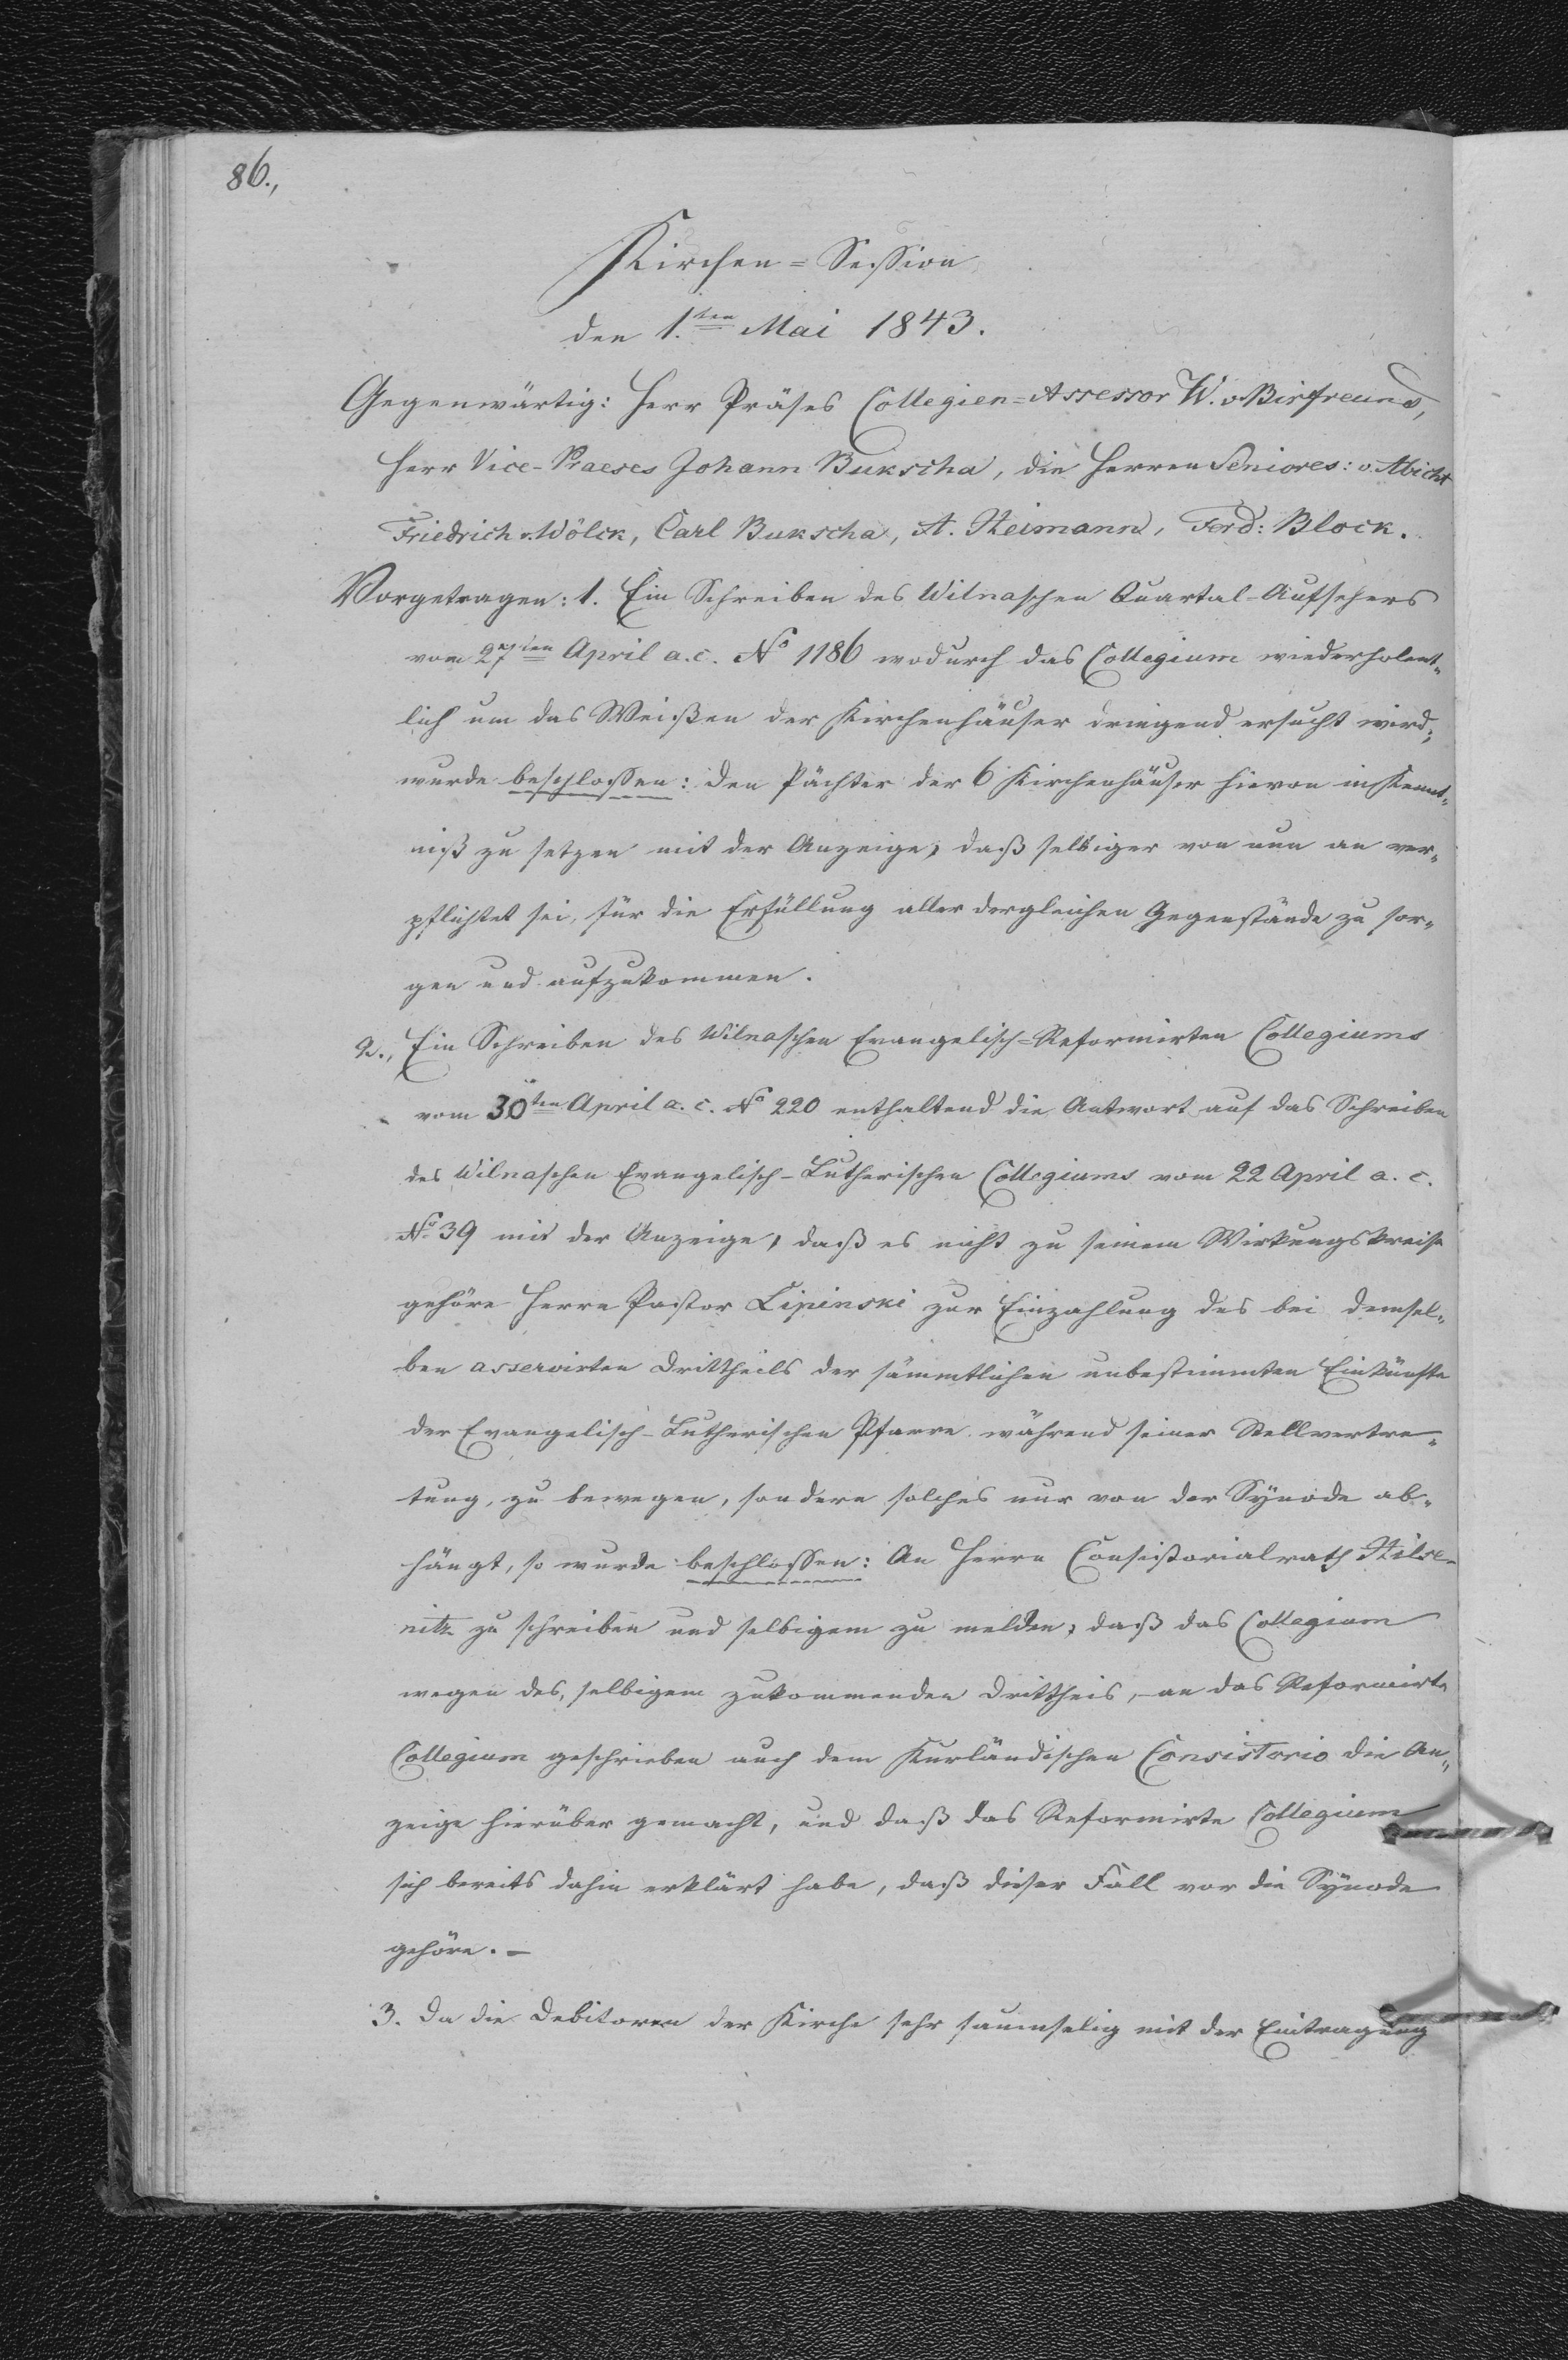 86.,
Kirchen=Session
den 1.ten Mai 1843.
Gegenwärtig: Herr Präses Collegien=Assessor W. v. Birfreund,
Herr Vice-Praeses Johann Bukscha, die Herren Seniores: v. Abicht
Friedrich v. Wölck, Carl Bukscha, A. Heimann, Ferd: Block.
Vorgetragen: 1. Ein Schreiben des Wilnaschen Quartal-Aufsehers
vom 27ten April a. c. No 1186 wodurch das Collegium wiederholent„
lich um das Weißen der Kirchenhäuser dringend ersucht wird;
wurde beschlossen: den Pächter der 6 Kirchenhäuser hievon in Kennt„
niß zu setzen mit der Anzeige, daß selbiger von nun an ver„
pflichtet sei, für die Erfüllung aller dergleichen Gegenstände zu sor„
gen und aufzukommen.
2., Ein Schreiben des Wilnaschen Evangelisch=Reformirten Collegiums
vom 30ten April a. c. No 220 enthaltend die Antwort auf das Schreiben
des Wilnaschen Evangelisch-Lutherischen Collegiums vom 22 April a. c.
No 39 mit der Anzeige, daß es nicht zu seinem Wirkungskreise
gehöre Herrn Pastor Lipinski zur Einzahlung des bei demsel„
ben asservirten Drittheils der sämmtlichen unbestimmten Einkünfte
der Evangelisch-Lutherischen Pfarre während seiner Stellvertre„
tung, zu bewegen, sondern solches nur von der Synode ab„
hängt, so wurde beschlossen: An Herrn Consistorialrath Hilse-
nitz zu schreiben und selbigem zu melden, daß das Collegium
wegen des, selbigem zukommenden Drittheis, an das Reformirte
Collegium geschrieben auch dem Kurländischen Consistorio die An„
zeige hierüber gemacht, und daß das Reformirte Collegium
sich bereits dahin erklärt habe, daß dieser Fall vor die Synode
gehöre. –
3. Da die Debitoren der Kirche sehr saumselig mit der Eintragung